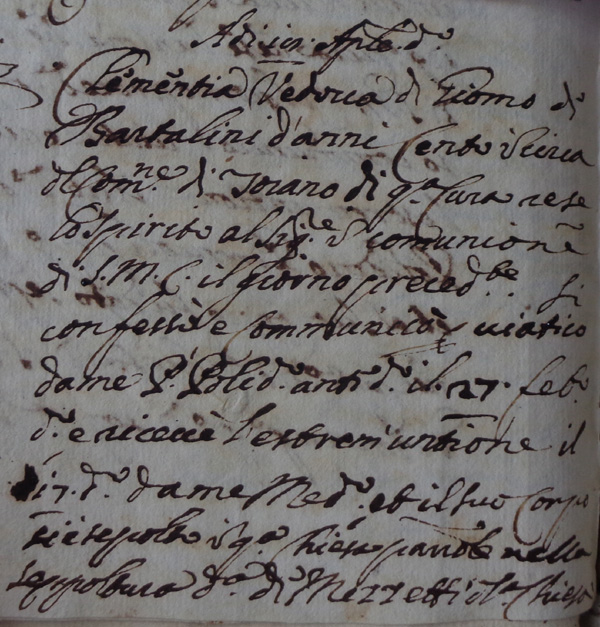 Adi 10. Aple. do.
Clementia Vedova di Giomo di
Bartalini d'anni Cento i Circa
del Comne. di Toiano di qa. Cura rese
lo spirito al Sige. i comunione
di S. M. C. il giorno precedbe. si
confessò e Communicò p viatico
da me P. Polido. anto. do. il 27. febo.
do. e riceuè l'estrem'untione il
17. do. da me Medo. et il suo Corpo
si è sepolto i qa. Chiesa parrole nella
seppoltura da. di Mezzetti i da. Chiesa